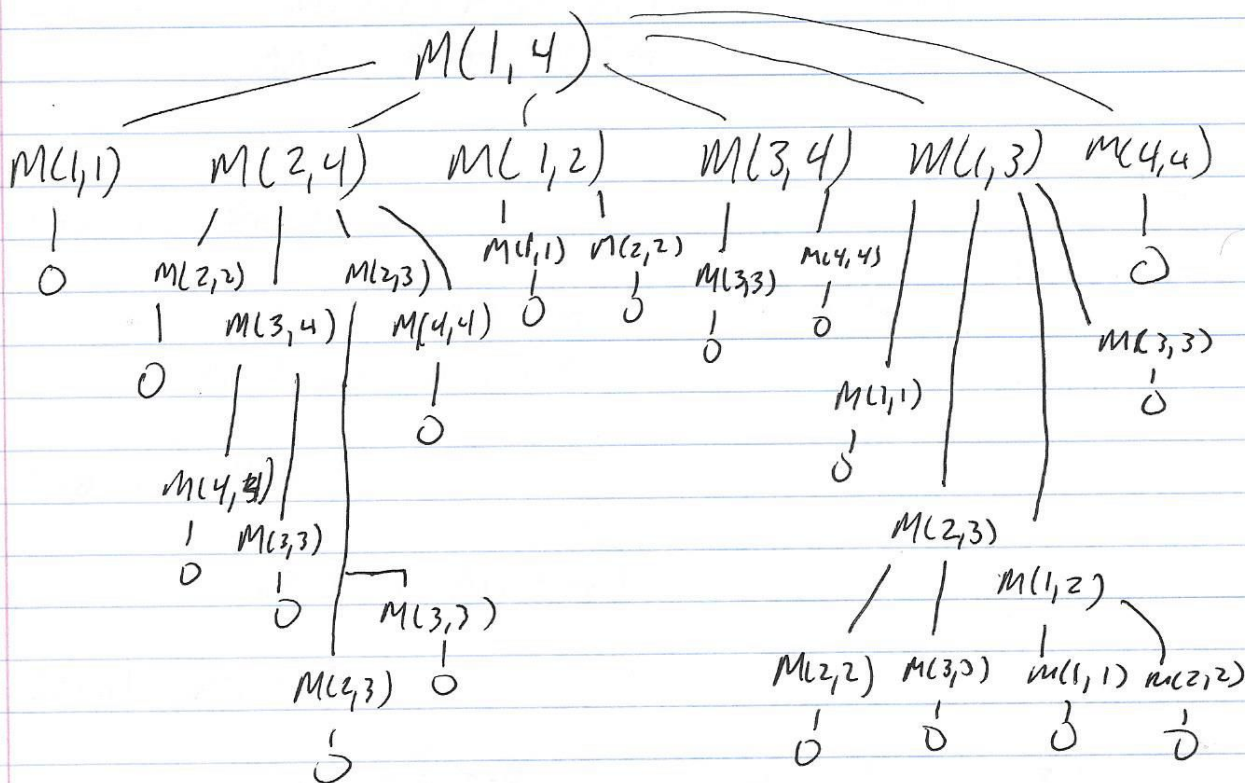 M(1,4)
M(1,1) M(2,4) M(1,2) M(3,4) M(1,3) M(4,4)
0 M(2,2) M(2,3) M(1,1) M(2,2) M(3,3) M(4,4) 0
0 M(3,4) M(4,4) 0 0 0 0 M(3,3)
0 M(1,1) 0
0
M(3,3) M(2,3)
0 0 M(3,3) M(1,2)
M(2,3) 0 M(2,2) M(3,3) M(1,1) M(2,2)
0 0 0 0 0